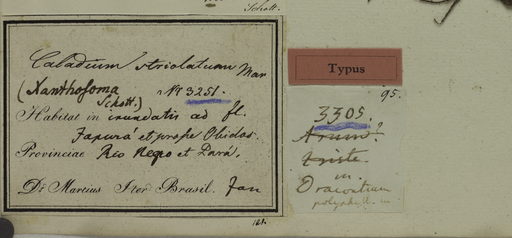 Schott.
Caladium striolatum Mar
(Xanthosoma Schott.) No 3251.
Habitat in inundatis ad fl.
Japurá et prope Obidos.
Provinciae Rio Negro et Pará,
Dr Martius Iter Brasil. Jan
Typus
95.
3305.
Arum?
triste
m.
Dracontium
polyphyll. m